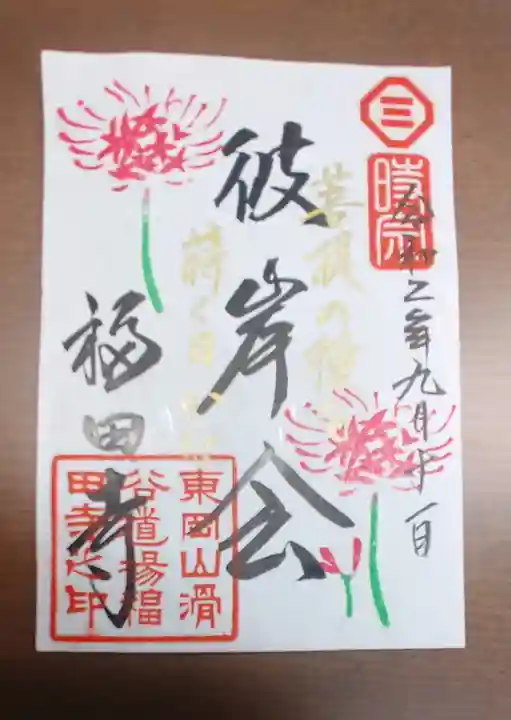 三
時宗
令和三年九月廿一日
菩提の種を
蒔く日
彼岸会
福田寺
東岡山滑
谷道場福
田寺之印